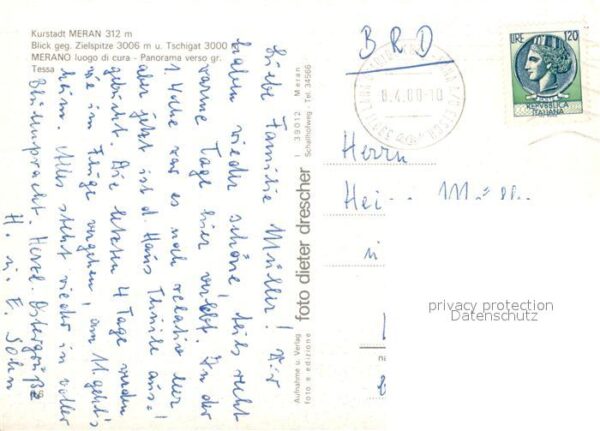 Kurstadt MERAN 312 m
Blick geg. Zielspitze 3006 m u. Tschigat 3000
MERANO luogo di cura - Panorama verso gr.
Tessa
Liebe Familie Müller! Wir
haben wieder schöne, teils recht
warme Tage hier verlebt. In der
1. Woche war es noch relativ leer
aber jetzt ist d. Haus Thurile aus-
gebucht. Die letzten 4 Tage werden
wie im Fluge vergehen, am 11. geht's
heim. Alles steht wieder in voller
Blütenpracht. Herzl. Ostergrüße
H. u. E. Sohn
Aufnahme u. Verlag
foto e edizione
foto dieter drescher
I 39012 Meran
Schaffhofweg - Tel. 34566
BRD
8.4.80-18
LIRE 120
REPUBBLICA
ITALIANA
Herrn
Hei
privacy protection
Datenschutz